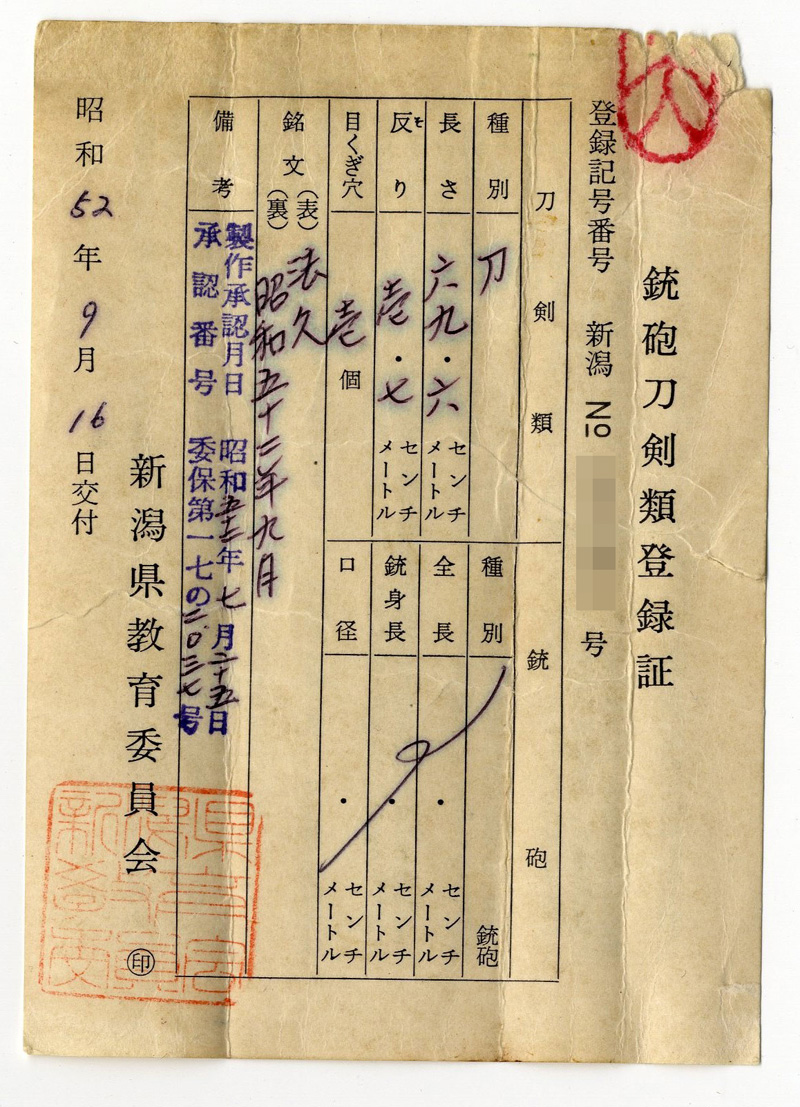 銃砲刀剣類登録証
登録記号番号 新潟 No 号
刀剣類
種別 刀
長さ 六九・六 センチメートル
反り 壱・七 センチメートル
ソ
目くぎ穴 壱個
銃砲
種別 銃砲
全長 ・ センチメートル
銃身長 ・ センチメートル
口径 ・ センチメートル
銘文
(表) 法久
(裏) 昭和五十二年九月
備考
製作承認月日 昭和五二年七月二十五日
承認番号 委保第一七の二〇三七号
新潟県教育委員会 ㊞
昭和52年9月16日交付